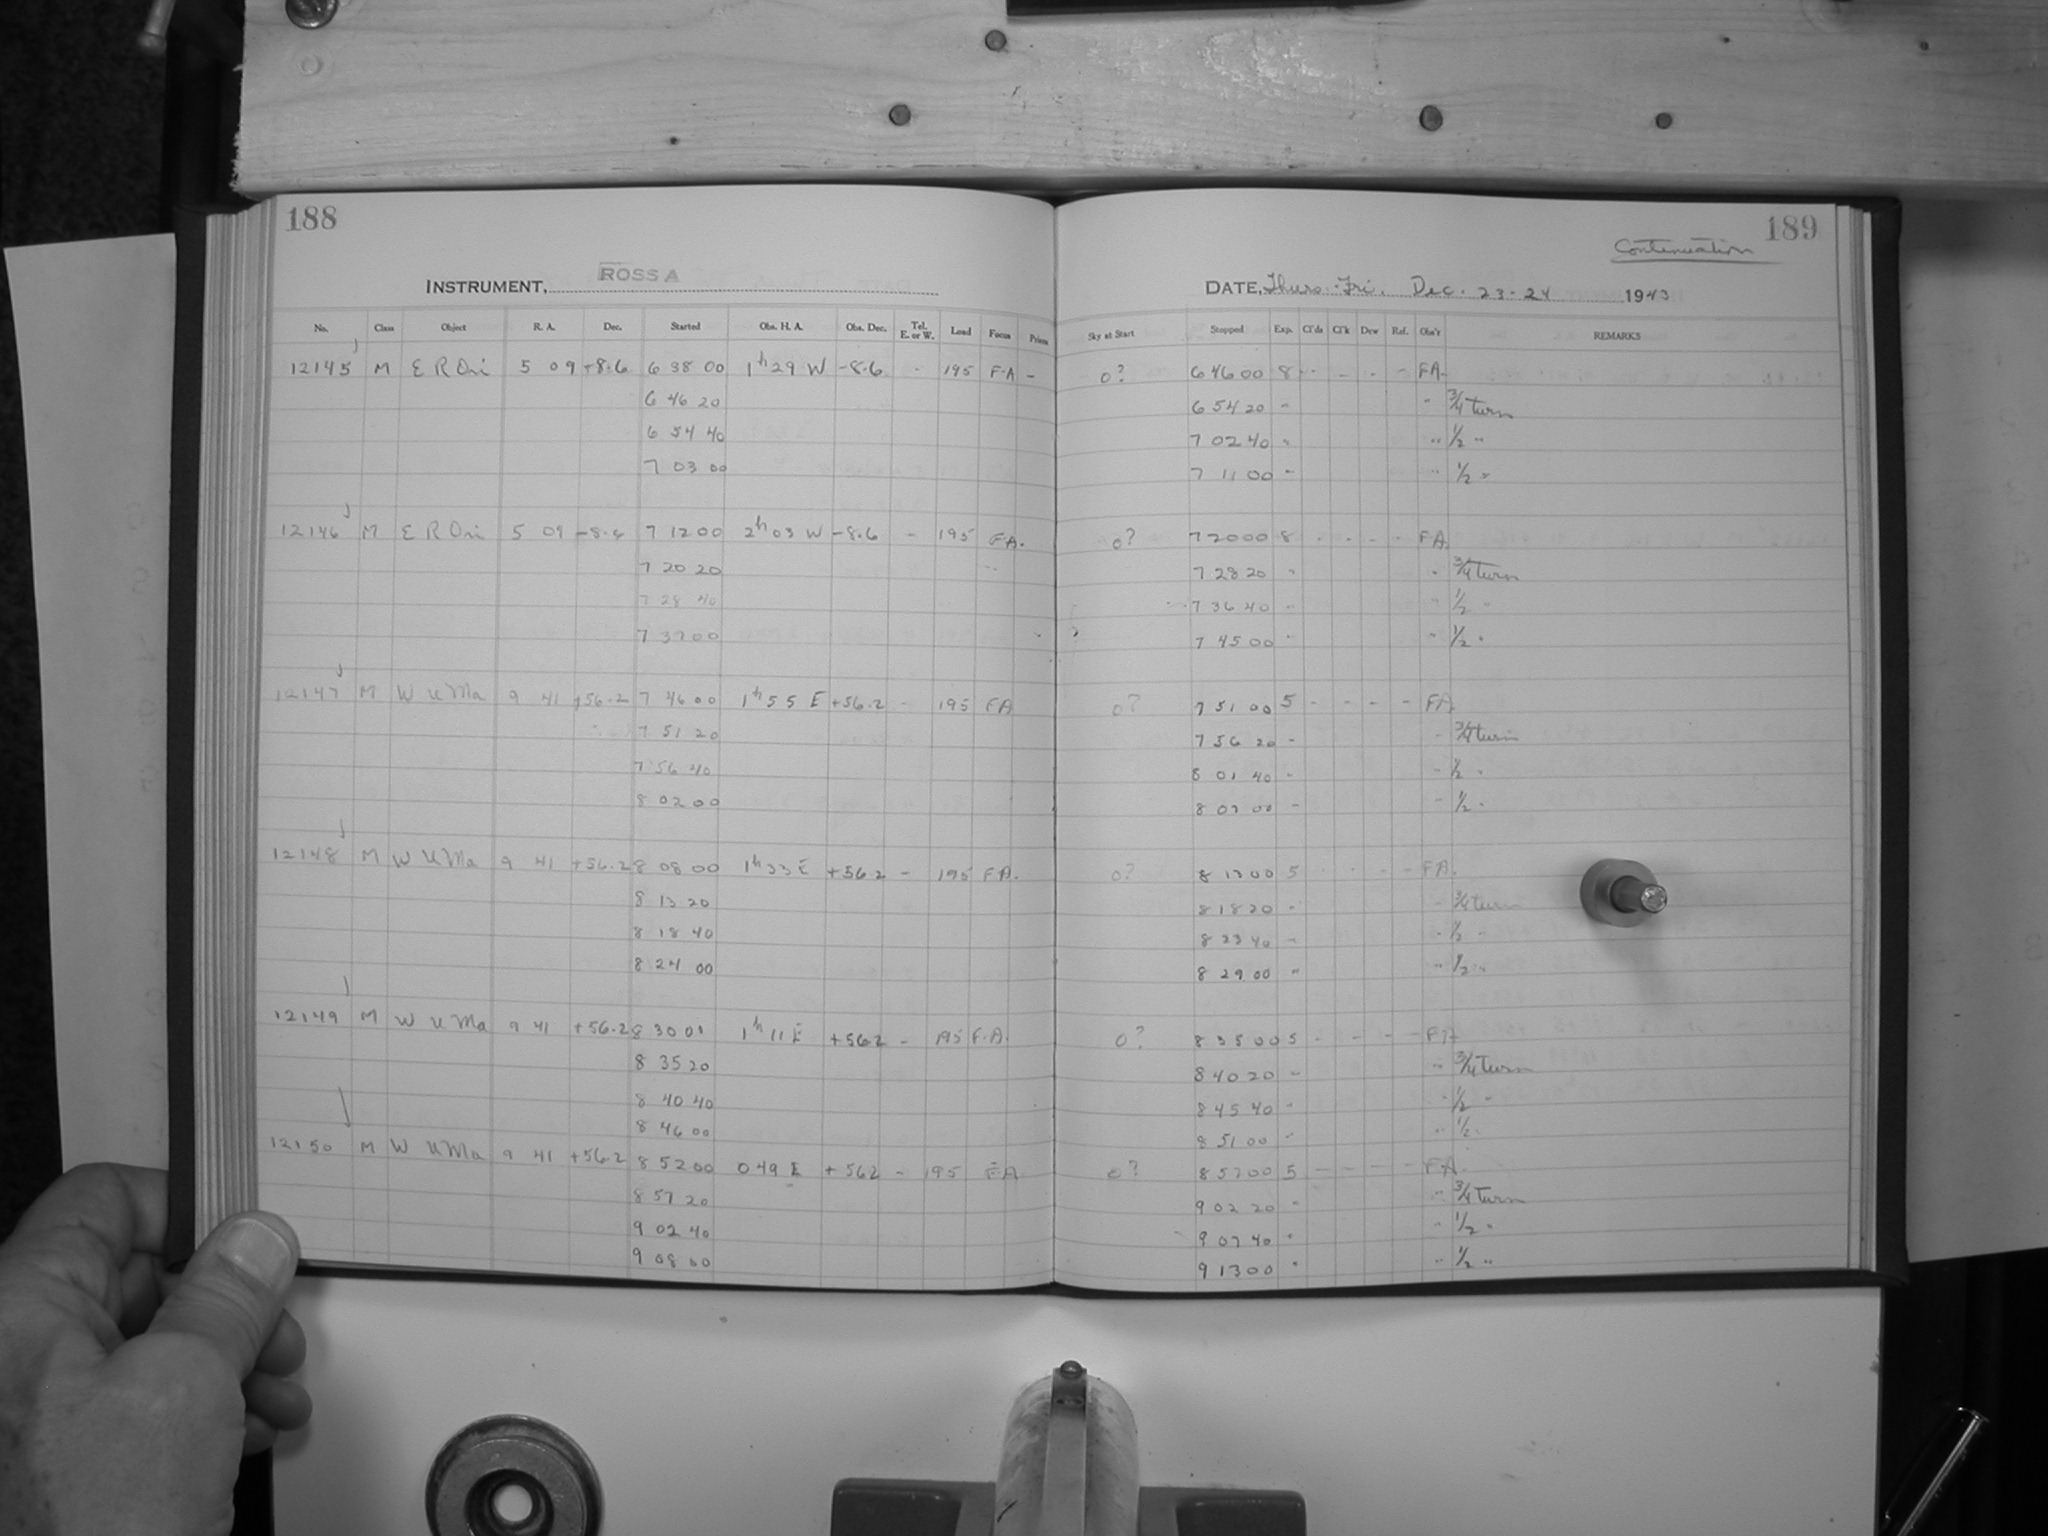 188
INSTRUMENT, ROSS A
No. Class Object R. A. Dec. Started Obs. H. A. Obs. Dec. Tel. E. or W. Load Focus Prism
12145 M E R Ori 5 09 -8.6 6 38 00 1h 29 W -8.6 - 195 F.A -
6 46 20
6 54 40
7 03 00
12146 M E R Ori 5 09 -8.6 7 12 00 2h 03 W -8.6 - 195 F.A.
7 20 20
7 28 40
7 37 00
12147 M W U Ma 9 41 +56.2 7 46 00 1h 55 E +56.2 - 195 FA
7 51 20
7 56 40
8 02 00
12148 M W U Ma 9 41 +56.2 8 08 00 1h 33 E +56.2 - 195 F.A.
8 13 20
8 18 40
8 24 00
12149 M W U Ma 9 41 +56.2 8 30 00 1h 11 E +56.2 - 195 F.A.
8 35 20
8 40 40
8 46 00
12150 M W U Ma 9 41 +56.2 8 52 00 0 49 E +562 - 195 FA
8 57 20
9 02 40
9 08 00
189
Contenuation
DATE, Thurs.-Fri. Dec. 23-24 1943
Sky at Start Stopped Exp. Cl'ds Cl'k Dew Ref. Obs'r REMARKS
0? 6 46 00 8 - - - - FA.
6 54 20 " " 3/4 turn
7 02 40 " " 1/2 "
7 11 00 " " 1/2 "
0? 7 20 00 8 - - - - FA.
7 28 20 " " 3/4 turn
7 36 40 " " 1/2 "
7 45 00 " " 1/2 "
0? 7 51 00 5 - - - - FA.
7 56 20 " " 3/4 turn
8 01 40 " " 1/2 "
8 07 00 " " 1/2 "
0? 8 13 00 5 - - - - FA.
8 18 20 " " 3/4 turn
8 23 40 " " 1/2 "
8 29 00 " " 1/2 "
0? 8 35 00 5 - - - - FA
8 40 20 " " 3/4 turn
8 45 40 " " 1/2 "
8 51 00 " " 1/2 "
0? 8 57 00 5 - - - - FA.
9 02 20 " " 3/4 turn
9 07 40 " " 1/2 "
9 13 00 " " 1/2 "